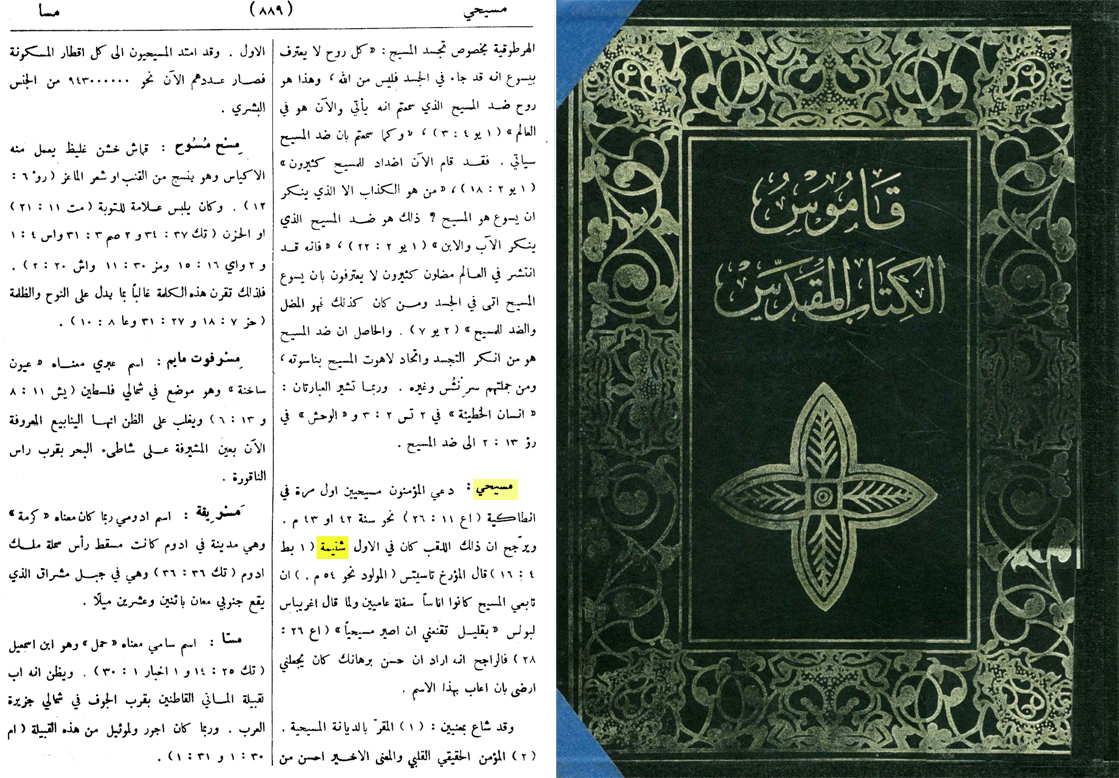 مسيحي
(٨٨٩)
مسا
الهرطوقية بخصوص تجسد المسيح : « كل روح لا يعترف
بيسوع انه قد جاء في الجسد فليس من الله ، وهذا هو
روح ضد المسيح الذي سمعتم انه يأتي والآن هو في
العالم » ( ١ يو ٤ : ٣ ) ، « وكما سمعتم بان ضد المسيح
سيأتي . فقد قام الآن اضداد للمسيح كثيرون »
( ١ يو ٢ : ١٨ ) ، « من هو الكذاب الا الذي ينكر
ان يسوع هو المسيح ؟ ذلك هو ضد المسيح الذي
ينكر الآب والابن » ( ١ يو ٢ : ٢٢ ) ، « فانه قد
انتشر في العالم مضلون كثيرون لا يعترفون بان يسوع
المسيح اتى في الجسد ومن كان كذلك فهو المضل
والضد للمسيح » ( ٢ يو ٧ ) . والحاصل ان ضد المسيح
هو من انكر التجسد واتحاد لاهوت المسيح بناسوته ،
ومن جملتهم سرنْثُس وغيره . وربما تشير العبارتان :
« انسان الخطيئة » في ٢ تس ٢ : ٣ و « الوحش » في
رؤ ١٣ : ٢ الى ضد المسيح .
مسيحي : دعي المؤمنون مسيحيين اول مرة في
انطاكية ( اع ١١ : ٢٦ ) نحو سنة ٤٢ او ٤٣ م .
ويرجّح ان ذلك اللقب كان في الاول شتيمة ( ١ بط
٤ : ١٦ ) قال المؤرخ تاسيتس ( المولود نحو ٥٤ م . ) ان
تابعي المسيح كانوا اناساً سفلة عاميين ولما قال اغريباس
لبولس « بقليل تقنعني ان اصير مسيحياً » ( اع ٢٦ :
٢٨ ) فالراجح انه اراد ان حسن برهانك كان يجعلني
ارضى بان اعاب بهذا الاسم .
وقد شاع بمعنيين : ( ١ ) المقرّ بالديانة المسيحية .
( ٢ ) المؤمن الحقيقي القلبي والمعنى الاخير احسن من
الاول . وقد امتد المسيحيون الى كل اقطار المسكونة
فصار عددهم الآن نحو ٩٤٣٠٠٠٠٠٠ من الجنس
البشري .
مِسْح مُسُوح : قماش خشن غليظ يعمل منه
الاكياس وهو ينسج من القنب او شعر الماعز ( رؤ ٦ :
١٢ ) . وكان يلبس علامة للتوبة ( مت ١١ : ٢١ )
او الحزن ( تك ٣٧ : ٣٤ و ٢ صم ٣ : ٣١ واس ٤ : ١
و ٢ واي ١٦ : ١٥ ومز ٣٠ : ١١ واش ٢٠ : ٢ ) .
فلذلك تقرن هذه الكلمة غالباً بما يدل على النوح والظلمة
( حز ٧ : ١٨ و ٢٧ : ٣١ وعا ٨ : ١٠ ) .
مِسْرفوت مايم : اسم عبري معناه « عيون
ساخنة » وهو موضع في شمالي فلسطين ( يش ١١ : ٨
و ١٣ : ٦ ) ويغلب على الظن انها الينابيع المعروفة
الآن بعين المشيرفة على شاطىء البحر بقرب راس
الناقورة .
مَسْريقة : اسم ادومي ربما كان معناه « كرمة »
وهي مدينة في ادوم كانت مسقط رأس سملة ملك
ادوم ( تك ٣٦ : ٣٦ ) وهي في جبل مشراق الذي
يقع جنوبي معان باثنين وعشرين ميلًا .
مسّا : اسم سامي معناه « حمل » وهو ابن اسمعيل
( تك ٢٥ : ١٤ و ١ اخبار ١ : ٣٠ ) . ويظن انه اب
لقبيلة الماساني القاطنين بقرب الجوف في شمالي جزيرة
العرب . وربما كان اجور ولموئيل من هذه القبيلة ( ام
٣٠ : ١ و ٣١ : ١ ) .
قَامُوسُ
الكِتَابِ المُقَدَّسِ